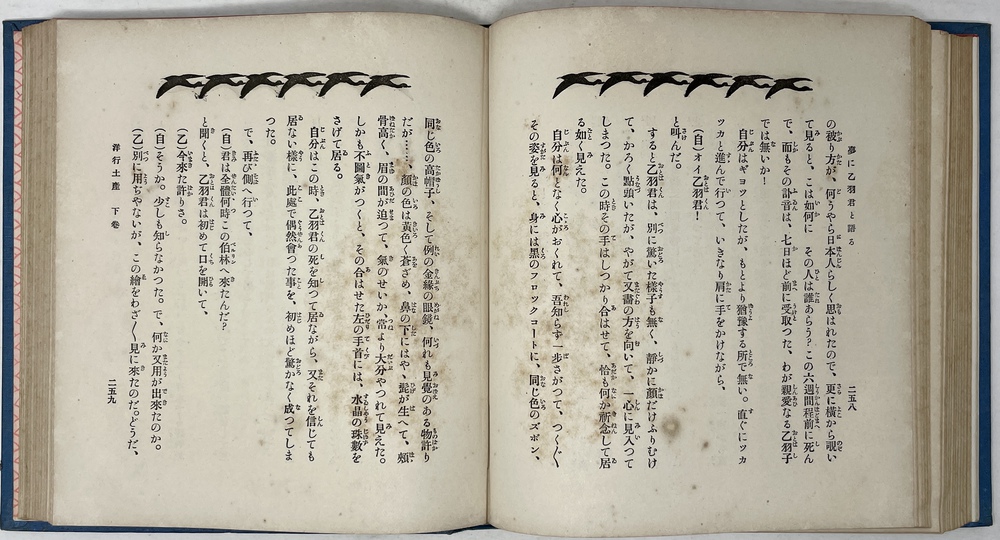 夢に乙羽君と語る
二五八
の被り方が、何うやら日本人らしく思はれたので、更に横から覗い
て見ると、こは如何に　その人は誰あらう？この六週間程前に死ん
で、而もその訃音は、七日ほど前に受取つた、わが親愛なる乙羽子
では無いか！
自分はギヨツとしたが、もとより猶豫する所で無い。直ぐにツカ
ツカと進んで行つて、いきなり肩に手をかけながら、
（自）オイ乙羽君！
と叫んだ。
すると乙羽君は、別に驚いた樣子も無く、靜かに顏だけふりむけ
て、かろく點頭いたが、やがて又畵の方を向いて、一心に見入つて
しまつた。この時その手はしつかり合はせて、恰も何か祈念して居
る如く見えた。
自分は何となく心がおくれて、吾知らず一歩さがつて、つく〴〵
その姿を見ると、身には黑のフロツクコートに、同じ色のズボン、
同じ色の高帽子、そして例の金緣の眼鏡、何れも見覺のある物許り
だが……、顏の色は黃色く蒼ざめ、鼻の下にはや、髭が生へて、頰
骨高く、眉の間が迫つて、氣のせいか、常より大分やつれて見えた。
しかも不圖氣がつくと、その合はせた左の手首には、水晶の珠數を
さげて居る。
自分はこの時、乙羽君の死を知つて居ながら、又それを信じても
居ない樣に、此處で偶然會つた事を、初めほど驚かなく成つてしま
つた。
で、再び側へ行つて、
（自）君は全體何時この伯林へ來たんだ？
と聞くと、乙羽君は初めて口を開いて、
（乙）今來た許りさ。
（自）そうか。少しも知らなかつた。で、何か又用が出來たのか。
（乙）別に用ぢやないが、この繪をわざ〳〵見に來たのだ。どうだ、
洋行土產　下卷
二五九